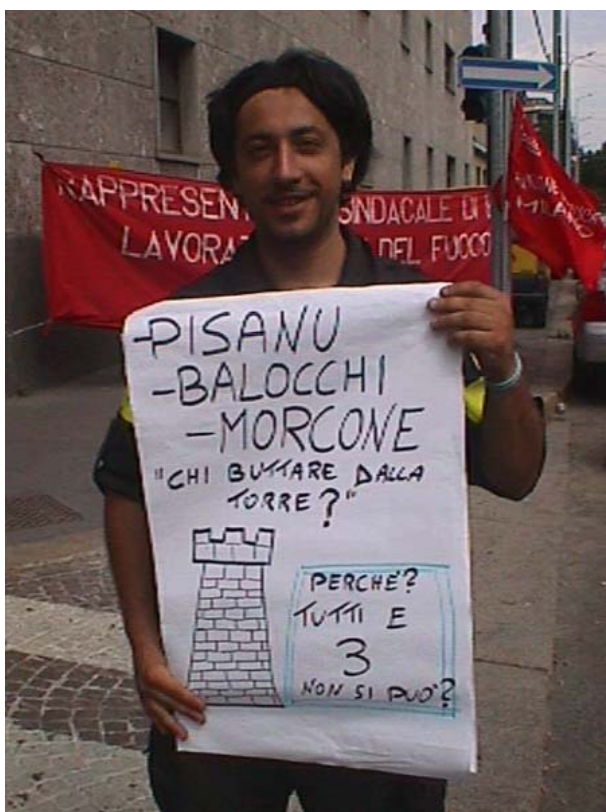 RAPPRESENT SINDACALE DI
LAVORA DEL FUOCO
MILANO
-PISANU
-BALOCCHI
-MORCONE
"CHI BUTTARE DALLA
TORRE?"
PERCHE'?
TUTTI E
3
NON SI PUO'?